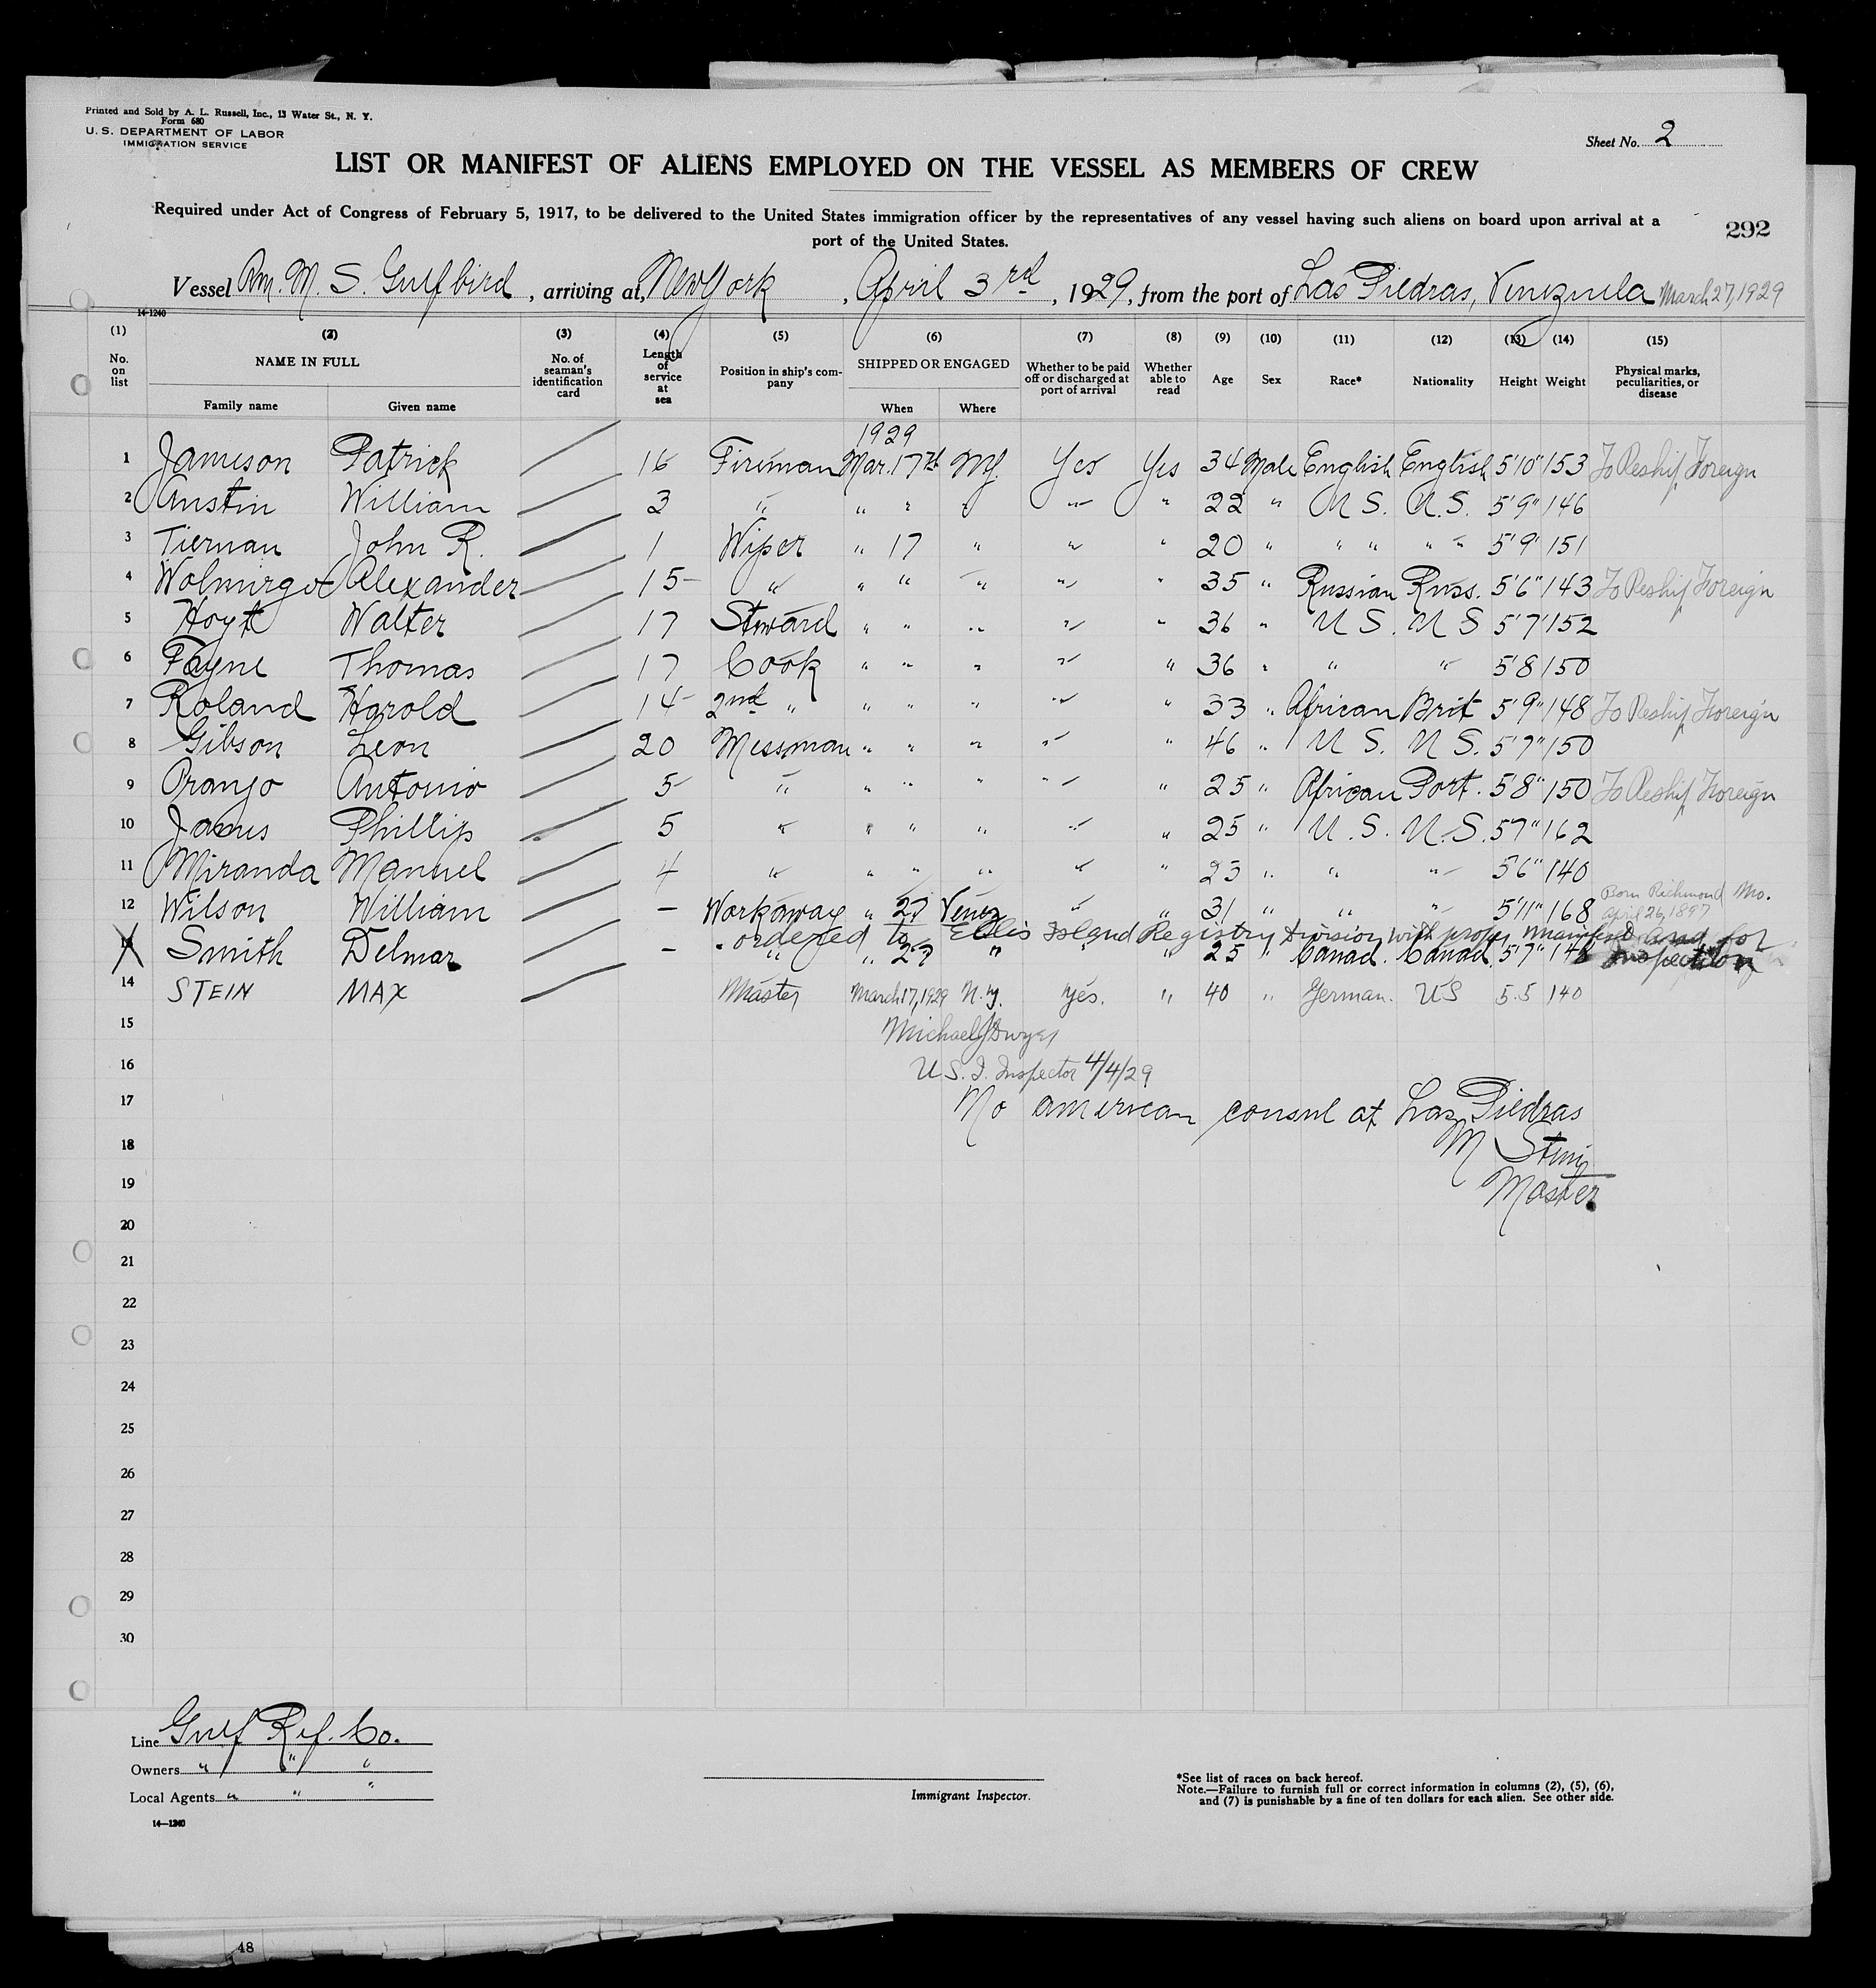 Printed and Sold by A. L. Russell, Inc., 13 Water St., N. Y.
Form 680
U. S. DEPARTMENT OF LABOR
IMMIGRATION SERVICE
Sheet No. 2
LIST OR MANIFEST OF ALIENS EMPLOYED ON THE VESSEL AS MEMBERS OF CREW
Required under Act of Congress of February 5, 1917, to be delivered to the United States immigration officer by the representatives of any vessel having such aliens on board upon arrival at a
port of the United States.
292
Vessel Am. M. S. Gulfbird, arriving at, New York, April 3rd, 1929, from the port of Las Piedras, Venezuela March 27, 1929
14-1240
(1) (2) (3) (4) (5) (6) (7) (8) (9) (10) (11) (12) (13) (14) (15)
No. on list NAME IN FULL Family name Given name No. of seaman's identification card Length of service at sea Position in ship's company SHIPPED OR ENGAGED When Where Whether to be paid off or discharged at port of arrival Whether able to read Age Sex Race* Nationality Height Weight Physical marks, peculiarities, or disease
1929
1 Jameson Patrick 16 Fireman Mar. 17th NY. Yes Yes 34 Male English English 5'10" 153 To Reship Foreign
2 Austin William 3 " " " " " " 22 " U S. U.S. 5'9" 146
3 Tiernan John R. 1 Wiper " 17 " " " 20 " " " " " 5'9" 151
4 Alexander 15 " " " " " " 35 " Russian Russ. 5'6" 143 To Reship Foreign
5 Hoyt Walter 17 Steward " " " " " 36 " U S. U S 5'7" 152
6 Thomas 17 Cook " " " " " 36 " " " 5'8 150
7 Roland Harold 14 2nd " " " " " " 33 " African Brit 5'9" 148 To Reship Foreign
8 Gibson Leon 20 Messman " " " " " 46 " U S. U S. 5'7" 150
9 Antonio 5 " " " " " " 25 " African Port. 5'8" 150 To Reship Foreign
10 James Phillip 5 " " " " " " 25 " U.S. U.S. 5'7" 162
11 Miranda Manuel 4 " " " " " " 23 " " " 5'6" 140
12 Wilson William - Workaway " 27 Venez " " 31 " " " 5'11" 168 Born Richmond Mo. April 26, 1897
ordered to Ellis Island Registry Division with proper manifest and for inspection
Smith Delmar - " " 27 " " " 25 " Canad. Canad. 5'7" 148
14 STEIN MAX Master March 17, 1929 N.Y. Yes. " 40 " German. US 5.5 140
15 Michael J Dwyer
16 U.S. I. Inspector 4/4/29
17 No american consul at Las Piedras
18 M Stein
19 Master
20
21
22
23
24
25
26
27
28
29
30
Line Gulf Ref. Co.
Owners " " "
Local Agents " " "
14—1240
Immigrant Inspector.
*See list of races on back hereof.
Note.—Failure to furnish full or correct information in columns (2), (5), (6),
and (7) is punishable by a fine of ten dollars for each alien. See other side.
48